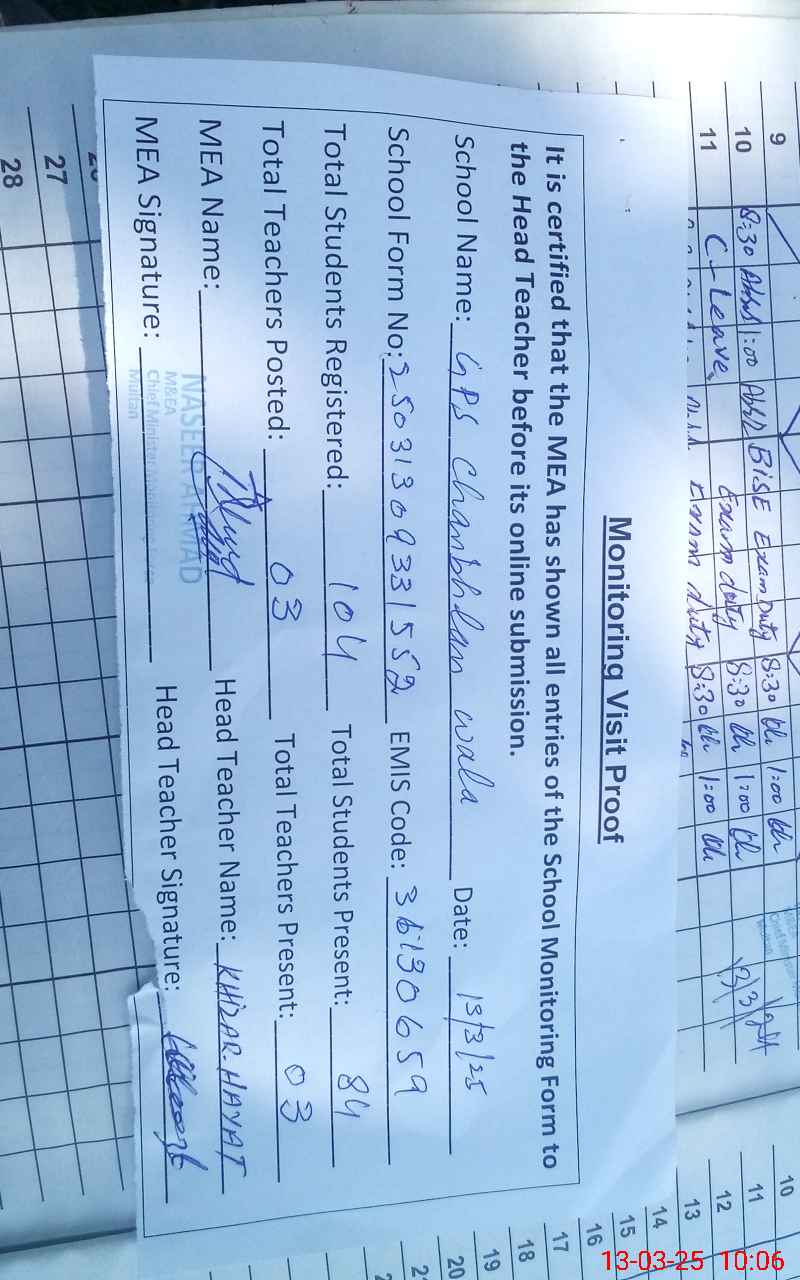 Monitoring Visit Proof
It is certified that the MEA has shown all entries of the School Monitoring Form to
the Head Teacher before its online submission.
School Name: GPS Chanbhlan wala Date: 13/3/25
School Form No: 25031309331552 EMIS Code: 36130659
Total Students Registered: 104 Total Students Present: 84
Total Teachers Posted: 03 Total Teachers Present: 03
MEA Name: Head Teacher Name: KHIZAR HAYAT
NASEER AHMAD
M&EA
Multan
MEA Signature: Head Teacher Signature:
9
10 8:30 1:00 BISE Exam Duty 8:30 1:00
11 C-Leave Exam duty 8:30 1:00
Exam duty 8:30 1:00
27
28
10
11
12
13
14
15
16
17
18
19
20
13-03-25 10:06